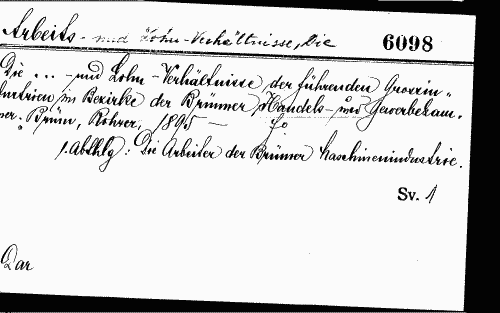 Arbeits- und Lohn-Verhältnisse, Die
6098
Die ... - und Lohn-Verhältnisse der führenden Grossin-
dustrien im Bezirke der Brünner Handels- und Gewerbekam-
mer. Brünn, Rohrer, 1895 —
1. Abthlg: Die Arbeiter der Brünner Maschinenindustrie.
Sv. 1
Dar